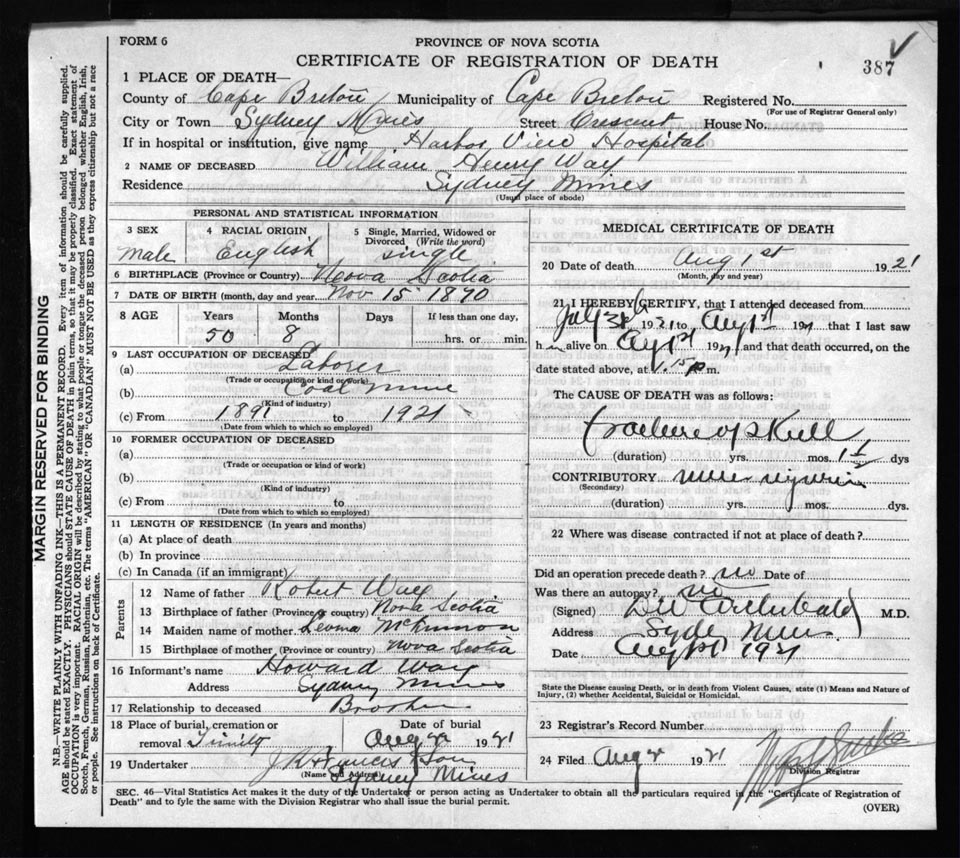 FORM 6
PROVINCE OF NOVA SCOTIA
CERTIFICATE OF REGISTRATION OF DEATH
387
1 PLACE OF DEATH—
County of Cape Breton Municipality of Cape Breton Registered No.
(For use of Registrar General only)
City or Town Sydney Mines Street Crescent House No.
If in hospital or institution, give name Harbor View Hospital
2 NAME OF DECEASED William Henry Way
Residence Sydney Mines
(Usual place of abode)
PERSONAL AND STATISTICAL INFORMATION
3 SEX 4 RACIAL ORIGIN 5 Single, Married, Widowed or Divorced (Write the word)
Male English Single
6 BIRTHPLACE (Province or Country) Nova Scotia
7 DATE OF BIRTH (month, day and year) Nov 15 1870
8 AGE Years Months Days If less than one day,
50 8 hrs. or min.
9 LAST OCCUPATION OF DECEASED
(a) Laborer
(Trade or occupation or kind of work)
(b) Coal Mine
(Kind of industry)
(c) From 1891 to 1921
(Date from which to which so employed)
10 FORMER OCCUPATION OF DECEASED
(a)
(Trade or occupation or kind of work)
(b)
(Kind of industry)
(c) From to
(Date from which to which so employed)
11 LENGTH OF RESIDENCE (In years and months)
(a) At place of death
(b) In province
(c) In Canada (if an immigrant)
Parents
12 Name of father Robert Way
13 Birthplace of father (Province or country) Nova Scotia
14 Maiden name of mother McKinnon
15 Birthplace of mother (Province or country) Nova Scotia
16 Informant's name Howard Way
Address Sydney Mines
17 Relationship to deceased Brother
18 Place of burial, cremation or removal Trinity
Date of burial Aug 2 1921
19 Undertaker Francis & Son
(Name and Address) Sydney Mines
MEDICAL CERTIFICATE OF DEATH
20 Date of death Aug 1st 1921
(Month, day and year)
21 I HEREBY CERTIFY, that I attended deceased from
July 31 1921 to Aug 1st 1921 that I last saw
him alive on Aug 1st 1921, and that death occurred, on
date stated above, at 1.15 p m.
The CAUSE OF DEATH was as follows:
fracture of skull
(duration) yrs. mos. 1 dys
CONTRIBUTORY
(Secondary)
(duration) yrs. mos. dys.
22 Where was disease contracted if not at place of death?
Did an operation precede death? no Date of
Was there an autopsy? no
(Signed) Archibald M.D.
Address Syd Mines
Date Aug 1st 1921
State the Disease causing Death, or in death from Violent Causes, state (1) Means and Nature of
Injury, (2) whether Accidental, Suicidal or Homicidal.
23 Registrar's Record Number
24 Filed Aug 2 1921
Division Registrar
SEC. 46—Vital Statistics Act makes it the duty of the Undertaker or person acting as Undertaker to obtain all the particulars required in the "Certificate of Registration of
Death" and to fyle the same with the Division Registrar who shall issue the burial permit.
(OVER)
MARGIN RESERVED FOR BINDING
N.B.—WRITE PLAINLY WITH UNFADING INK—THIS IS A PERMANENT RECORD. Every item of information should be carefully supplied.
AGE should be stated EXACTLY. PHYSICIANS should STATE CAUSE OF DEATH in plain terms, so that it may be properly classified. Exact statement of
OCCUPATION is very important. RACIAL ORIGIN will be described by stating to what people or tongue the deceased person belonged whether English, Irish,
Scotch, French, German, Russian, Ruthenian, etc. The terms "AMERICAN" OR "CANADIAN" MUST NOT BE USED as they express citizenship but not a race
or people. See instructions on back of Certificate.